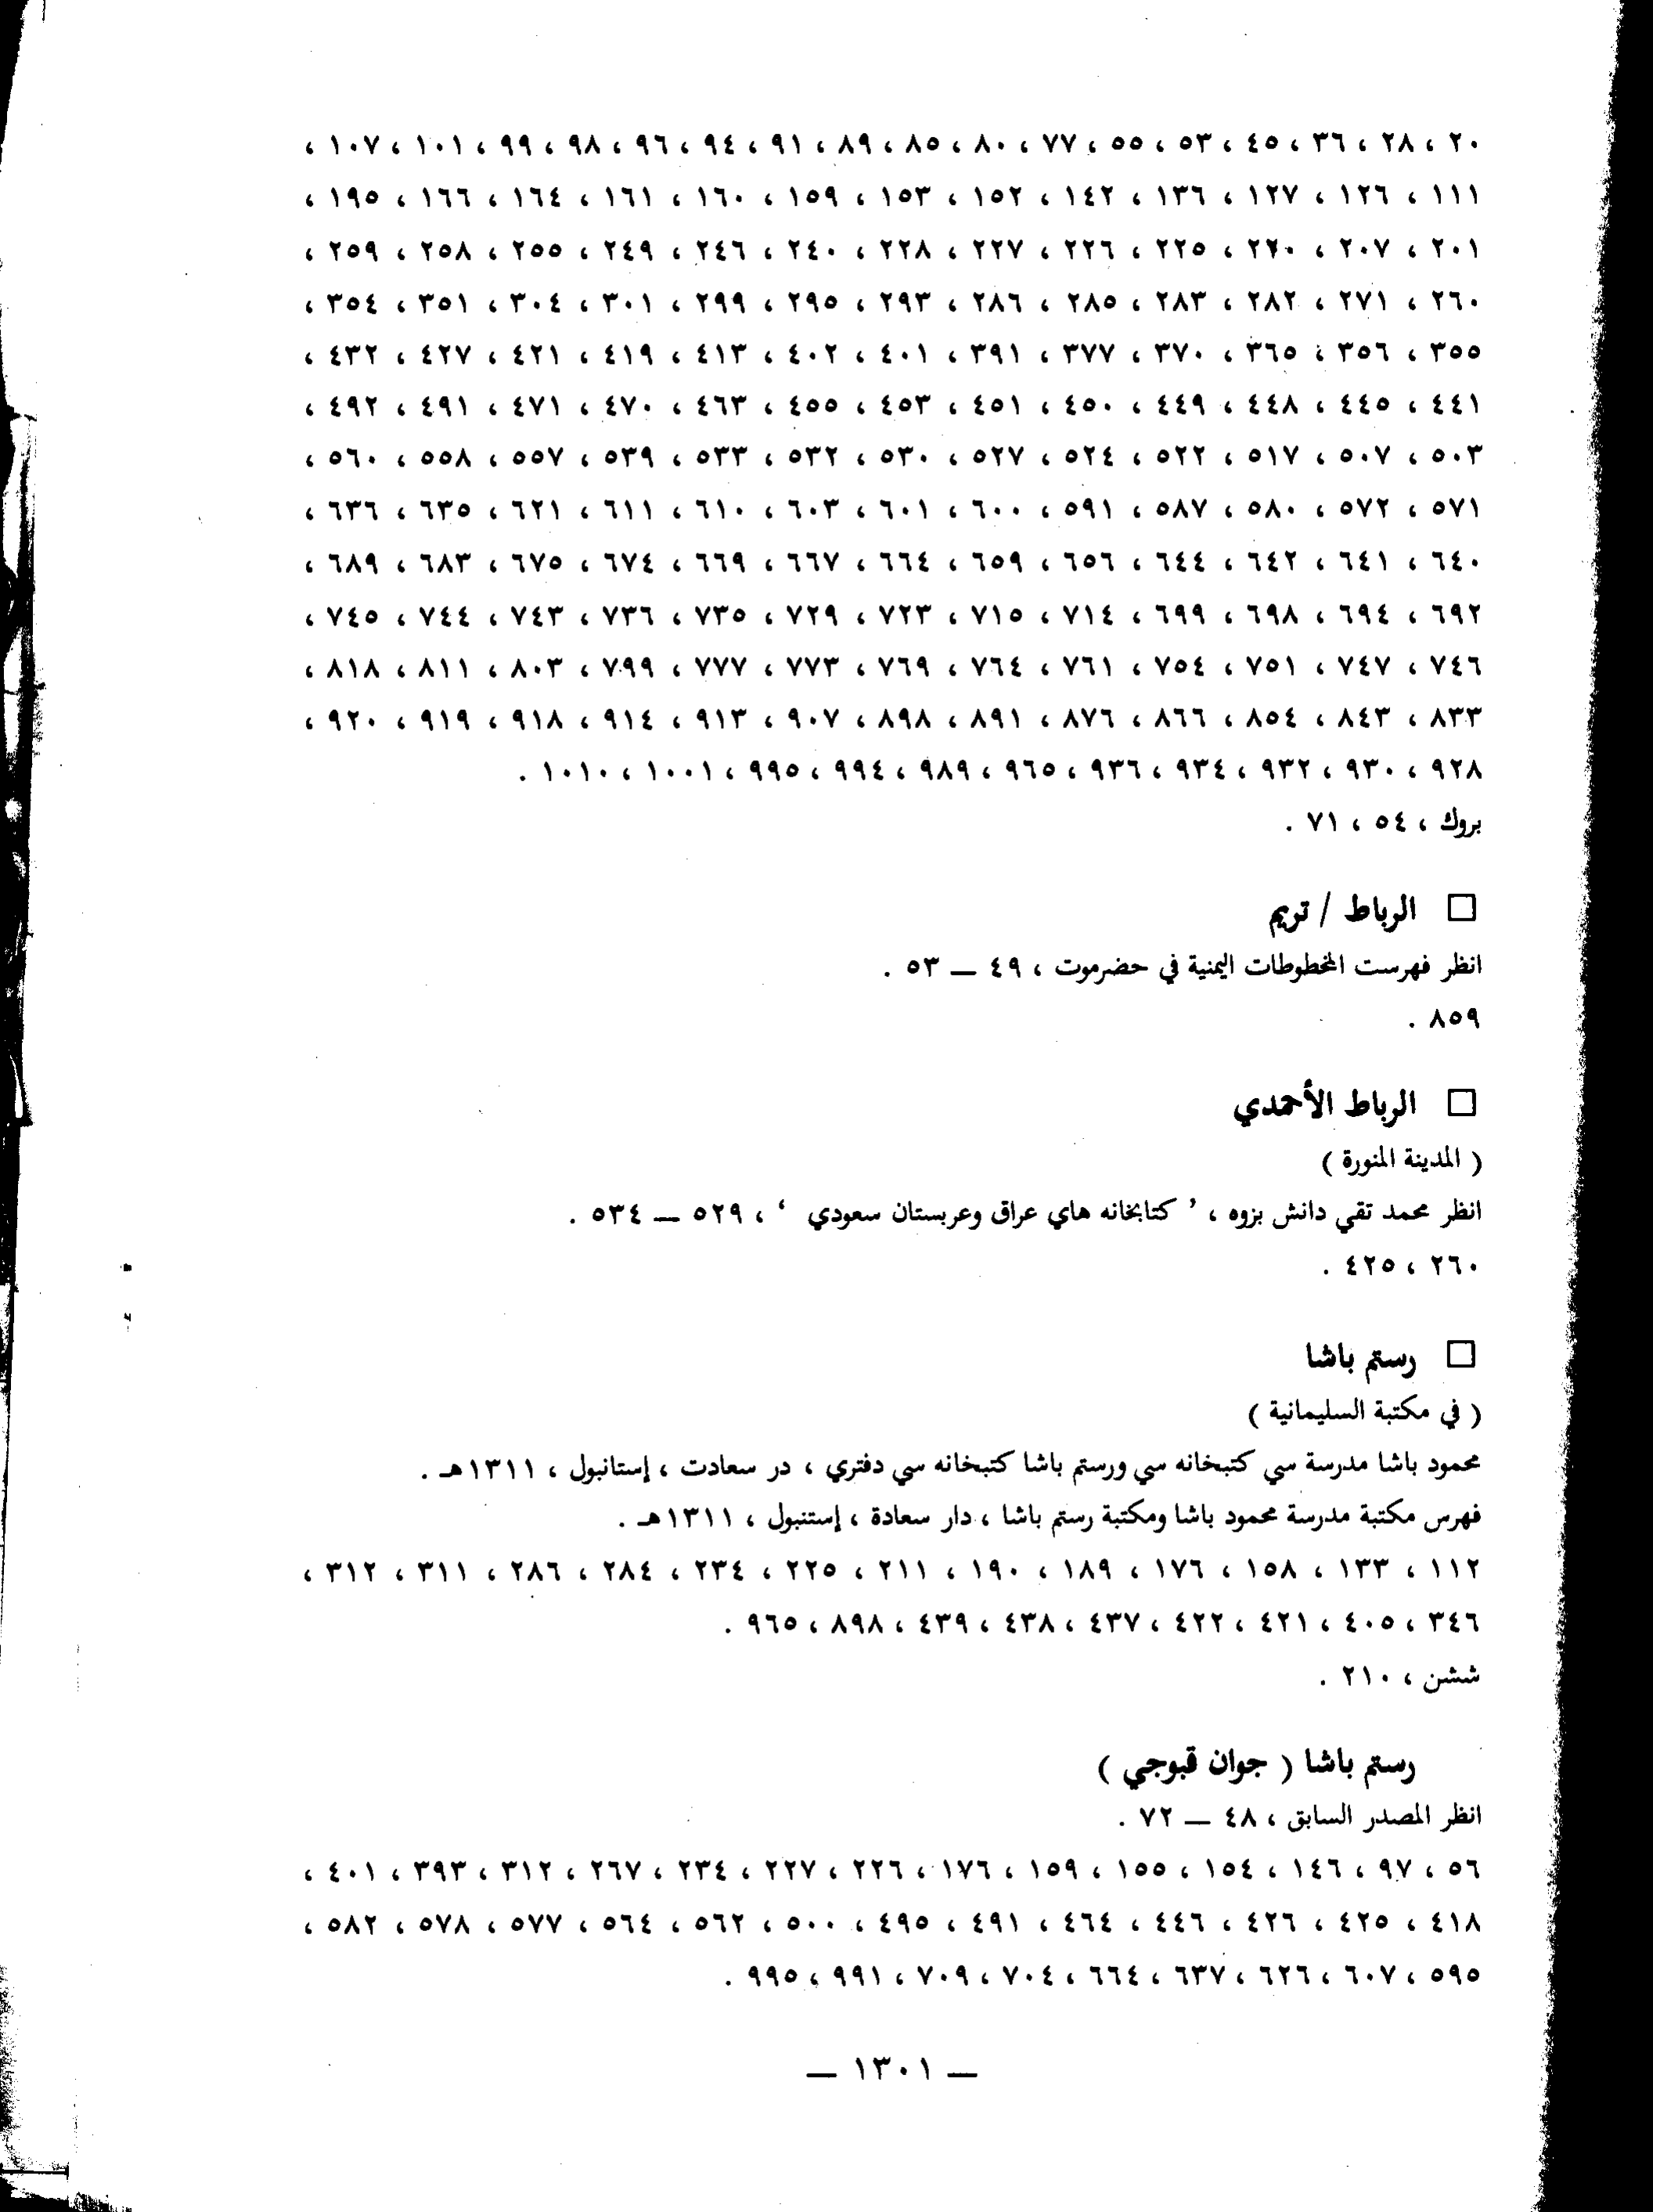 ٢٠ ، ٢٨ ، ٣٦ ، ٤٥ ، ٥٣ ، ٥٥ ، ٧٧ ، ٨٠ ، ٨٥ ، ٨٩ ، ٩١ ، ٩٤ ، ٩٦ ، ٩٨ ، ٩٩ ، ١٠١ ، ١٠٧ ،
١١١ ، ١٢٦ ، ١٢٧ ، ١٣٦ ، ١٤٢ ، ١٥٢ ، ١٥٣ ، ١٥٩ ، ١٦٠ ، ١٦١ ، ١٦٤ ، ١٦٦ ، ١٩٥ ،
٢٠١ ، ٢٠٧ ، ٢٢٠ ، ٢٢٥ ، ٢٢٦ ، ٢٢٧ ، ٢٢٨ ، ٢٤٠ ، ٢٤٦ ، ٢٤٩ ، ٢٥٥ ، ٢٥٨ ، ٢٥٩ ،
٢٦٠ ، ٢٧١ ، ٢٨٢ ، ٢٨٣ ، ٢٨٥ ، ٢٨٦ ، ٢٩٣ ، ٢٩٥ ، ٢٩٩ ، ٣٠١ ، ٣٠٤ ، ٣٥١ ، ٣٥٤ ،
٣٥٥ ، ٣٥٦ ، ٣٦٥ ، ٣٧٠ ، ٣٧٧ ، ٣٩١ ، ٤٠١ ، ٤٠٢ ، ٤١٣ ، ٤١٩ ، ٤٢١ ، ٤٢٧ ، ٤٣٢ ،
٤٤١ ، ٤٤٥ ، ٤٤٨ ، ٤٤٩ ، ٤٥٠ ، ٤٥١ ، ٤٥٣ ، ٤٥٥ ، ٤٦٣ ، ٤٧٠ ، ٤٧١ ، ٤٩١ ، ٤٩٢ ،
٥٠٣ ، ٥٠٧ ، ٥١٧ ، ٥٢٢ ، ٥٢٤ ، ٥٢٧ ، ٥٣٠ ، ٥٣٢ ، ٥٣٣ ، ٥٣٩ ، ٥٥٧ ، ٥٥٨ ، ٥٦٠ ،
٥٧١ ، ٥٧٢ ، ٥٨٠ ، ٥٨٧ ، ٥٩١ ، ٦٠٠ ، ٦٠١ ، ٦٠٣ ، ٦١٠ ، ٦١١ ، ٦٢١ ، ٦٣٥ ، ٦٣٦ ،
٦٤٠ ، ٦٤١ ، ٦٤٢ ، ٦٤٤ ، ٦٥٦ ، ٦٥٩ ، ٦٦٤ ، ٦٦٧ ، ٦٦٩ ، ٦٧٤ ، ٦٧٥ ، ٦٨٣ ، ٦٨٩ ،
٦٩٢ ، ٦٩٤ ، ٦٩٨ ، ٦٩٩ ، ٧١٤ ، ٧١٥ ، ٧٢٣ ، ٧٢٩ ، ٧٣٥ ، ٧٣٦ ، ٧٤٣ ، ٧٤٤ ، ٧٤٥ ،
٧٤٦ ، ٧٤٧ ، ٧٥١ ، ٧٥٤ ، ٧٦١ ، ٧٦٤ ، ٧٦٩ ، ٧٧٣ ، ٧٧٧ ، ٧٩٩ ، ٨٠٣ ، ٨١١ ، ٨١٨ ،
٨٣٣ ، ٨٤٣ ، ٨٥٤ ، ٨٦٦ ، ٨٧٦ ، ٨٩١ ، ٨٩٨ ، ٩٠٧ ، ٩١٣ ، ٩١٤ ، ٩١٨ ، ٩١٩ ، ٩٢٠ ،
٩٢٨ ، ٩٣٠ ، ٩٣٢ ، ٩٣٤ ، ٩٣٦ ، ٩٦٥ ، ٩٨٩ ، ٩٩٤ ، ٩٩٥ ، ١٠٠١ ، ١٠١٠ .
بروك ، ٥٤ ، ٧١ .
□ الرباط / تريم
انظر فهرست المخطوطات اليمنية في حضرموت ، ٤٩ — ٥٣ .
٨٥٩ .
□ الرباط الأحمدي
( المدينة المنورة )
انظر محمد تقي دانش بزوه ، ’ كتابخانه هاي عراق وعربستان سعودي ‘ ، ٥٢٩ — ٥٣٤ .
٢٦٠ ، ٤٢٥ .
□ رستم باشا
( في مكتبة السليمانية )
محمود باشا مدرسة سي كتبخانه سي ورستم باشا كتبخانه سي دفتري ، در سعادت ، إستانبول ، ١٣١١هـ .
فهرس مكتبة مدرسة محمود باشا ومكتبة رستم باشا ، دار سعادة ، إستنبول ، ١٣١١هـ .
١١٢ ، ١٣٣ ، ١٥٨ ، ١٧٦ ، ١٨٩ ، ١٩٠ ، ٢١١ ، ٢٢٥ ، ٢٣٤ ، ٢٨٤ ، ٢٨٦ ، ٣١١ ، ٣١٢ ،
٣٤٦ ، ٤٠٥ ، ٤٢١ ، ٤٢٢ ، ٤٣٧ ، ٤٣٨ ، ٤٣٩ ، ٨٩٨ ، ٩٦٥ .
ششن ، ٢١٠ .
رستم باشا ( جوان قبوجي )
انظر المصدر السابق ، ٤٨ — ٧٢ .
٥٦ ، ٩٧ ، ١٤٦ ، ١٥٤ ، ١٥٥ ، ١٥٩ ، ١٧٦ ، ٢٢٦ ، ٢٢٧ ، ٢٣٤ ، ٢٦٧ ، ٣١٢ ، ٣٩٣ ، ٤٠١ ،
٤١٨ ، ٤٢٥ ، ٤٢٦ ، ٤٤٦ ، ٤٦٤ ، ٤٩١ ، ٤٩٥ ، ٥٠٠ ، ٥٦٢ ، ٥٦٤ ، ٥٧٧ ، ٥٧٨ ، ٥٨٢ ،
٥٩٥ ، ٦٠٧ ، ٦٢٦ ، ٦٣٧ ، ٦٦٤ ، ٧٠٤ ، ٧٠٩ ، ٩٩١ ، ٩٩٥ .
— ١٣٠١ —